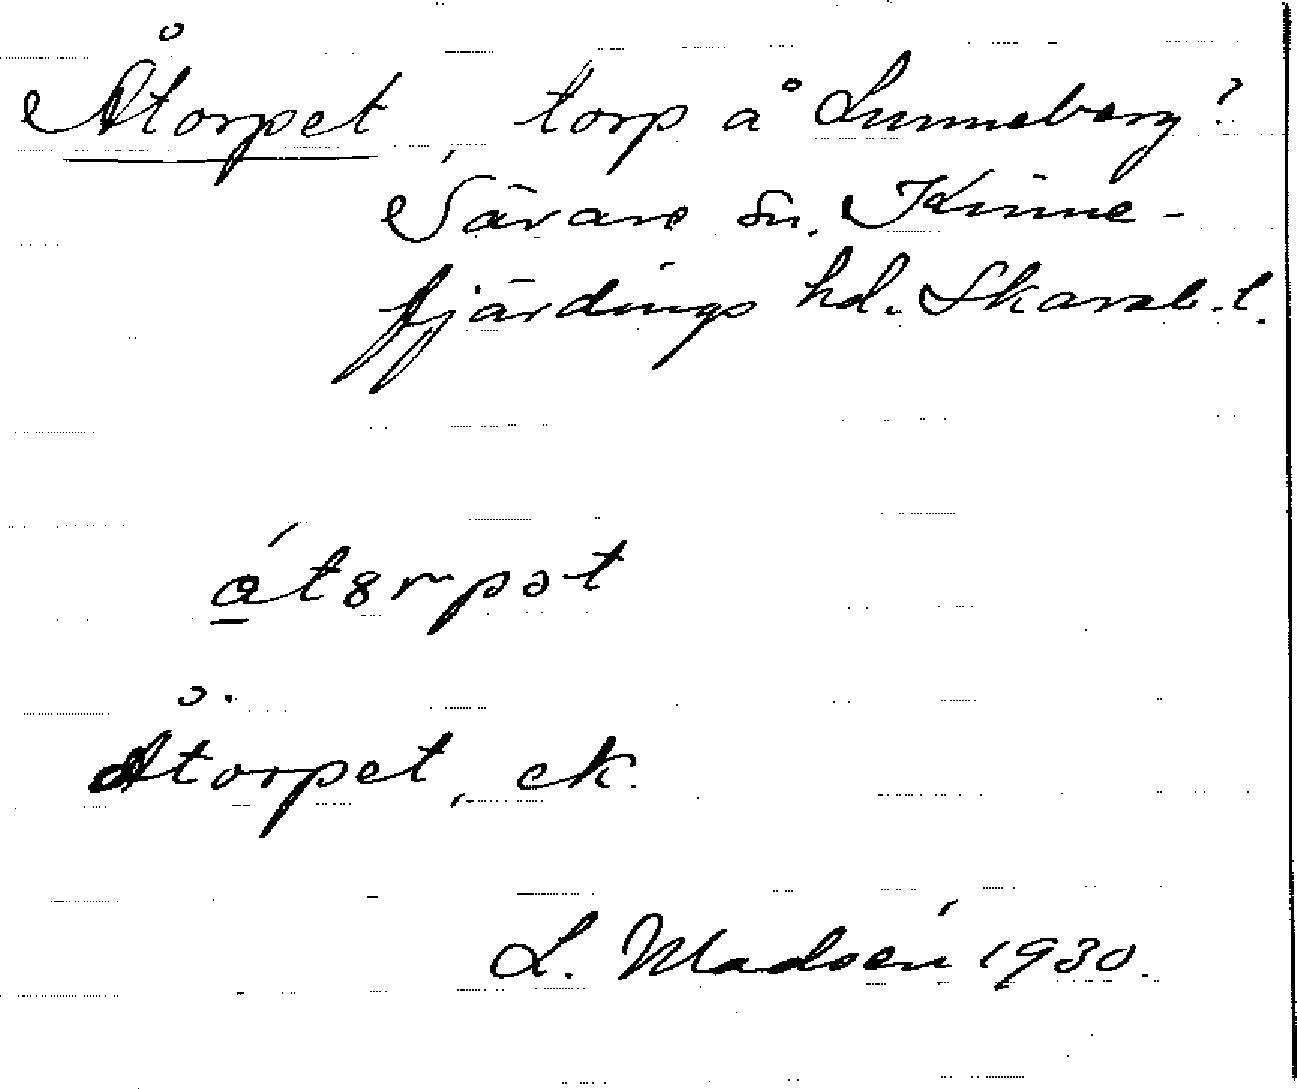 Åtorpet, torp å Lunneberg?
Särare sn. Kinne-
fjärdings hd. Skarab.l.
átərpət
Åtorpet, ek.
L. Madsén 1930.